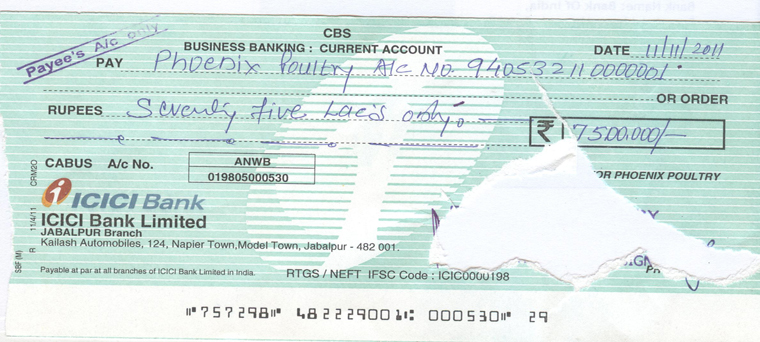 CBS
BUSINESS BANKING : CURRENT ACCOUNT
Payee's A/c only
DATE 11/11/2011
PAY Phoenix Poultry A/c No. 940532110000001
OR ORDER
RUPEES Seventy five Lacs only.
₹ 7500000/-
CABUS A/c No. ANWB
019805000530
OR PHOENIX POULTRY
CRM2O
11/4/11
R
SBF (M)
ICICI Bank
ICICI Bank Limited
JABALPUR Branch
Kailash Automobiles, 124, Napier Town,Model Town, Jabalpur - 482 001.
Payable at par at all branches of ICICI Bank Limited in India.
RTGS / NEFT IFSC Code : ICIC0000198
⑈757298⑈ 482229001⑆ 000530⑈ 29